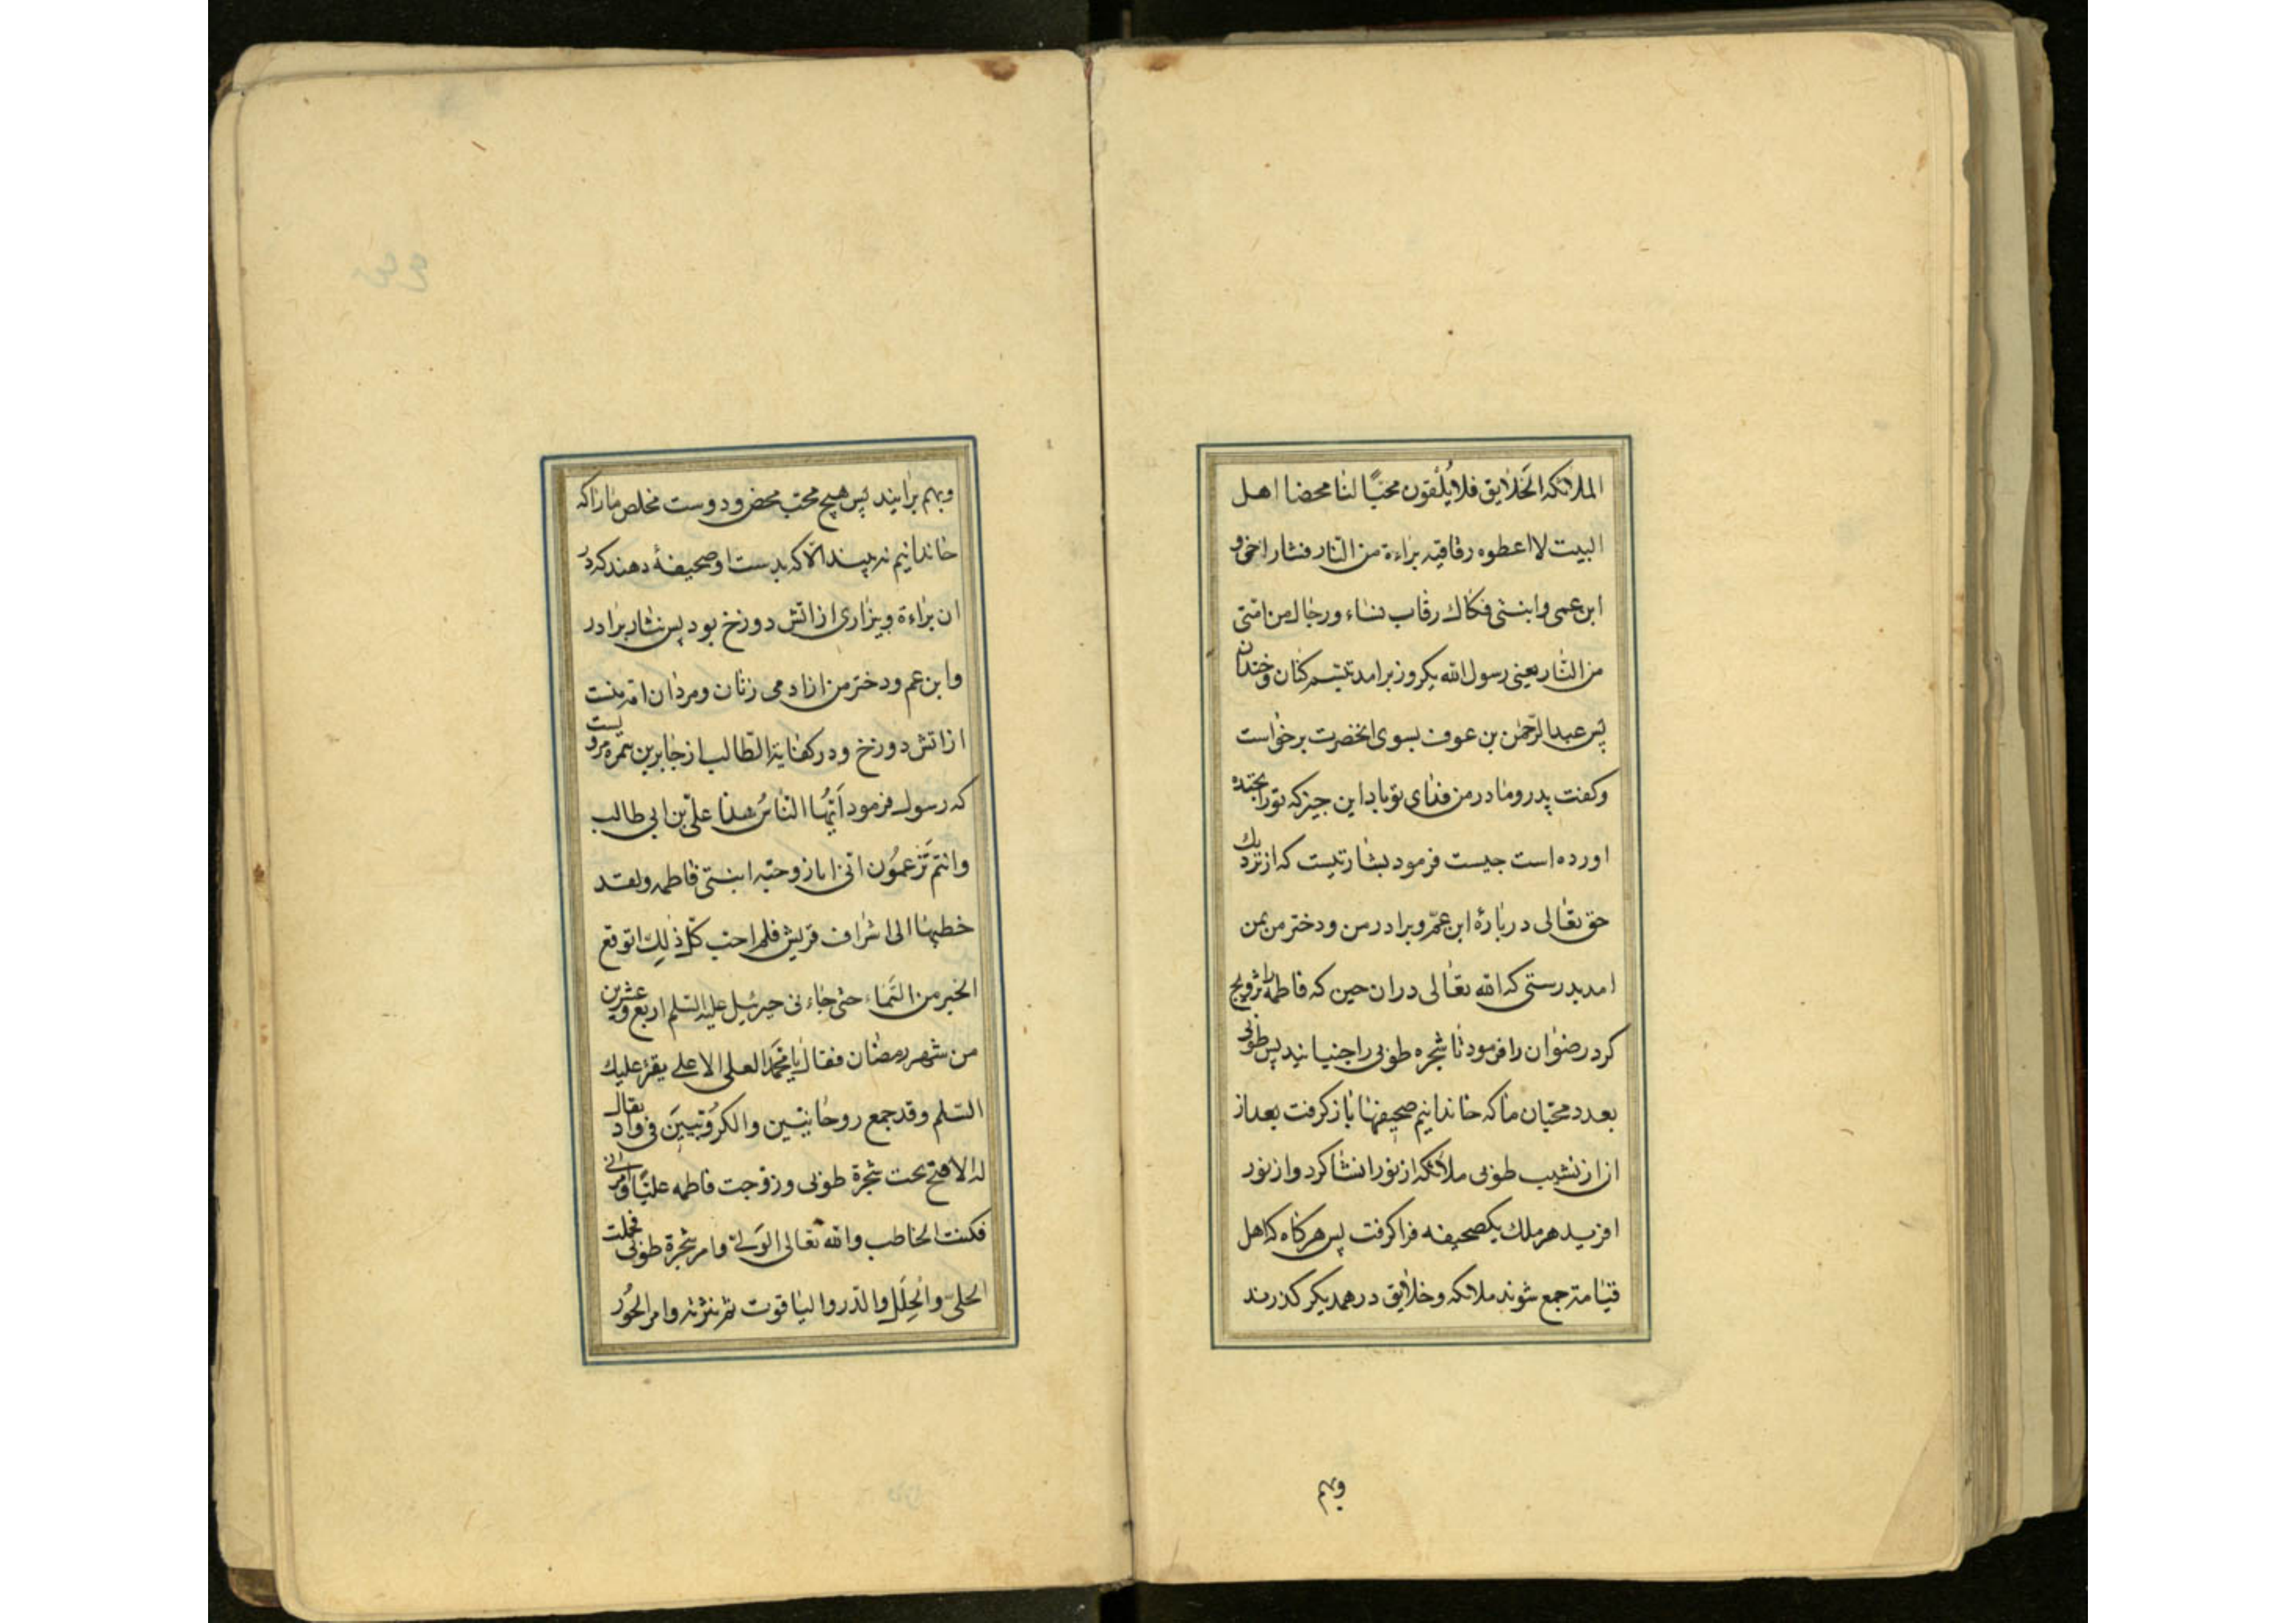 الملائكه الخلايق فلا يلقون محبّا لنا محضا اهل
البيت لا اعطوه رقاقيه براءة من النار فنثار اخی و
ابن عمی وابنتی فكاك رقاب نساء ورجال من امّتی
من النّار يعنی رسول الله يكروز برامد تبسم كنان وخندان
پس عبدالرّحمٰن بن عوف بسوی انخضرت برخواست
وكفت پدر ومادر من فدای تو باد اين جيز كه تورا بخنده
اورده است جيست فرمود بشارتيست كه از نزديك
حق تعالی دربارهٔ ابن عمّ وبرادر من ودختر من بمن
امد بدرستی كه الله تعالی دران حين كه فاطمه را تزويج
كرد رضوان را فرمود تا شجره طوبی را جنبانيد پس طوبی
بعدد محبّان ما كه خاندانيم صحيفها باز كرفت بعد از
ان از نشيب طوبی ملائكه از نور انشا كرد واز نور
افريد هر ملك يكصحيفه فرا كرفت پس هركاه كه اهل
قيامة جمع شوند ملائكه وخلايق در همديكر كذرند
وبهم
وبهم برايند پس هيچ محبّ محض ودوست مخلص مارا كه
خاندانيم نه بينند الّا كه بدست او صحيفهٔ دهند كه در
ان براءة وبيزاری از اتش دوزخ بود پس نثار برادر
وابن عم ودختر من ازادمی زنان ومردان امّة منست
از اتش دوزخ ودر كفاية الطّالب از جابر بن سمره مرويست
كه رسول فرمود ايّها النّاس هذا علیّ بن ابی طالب
وانتم تزعمون انّی انا زوجته ابنتی فاطمه ولقد
خطبها الی اشراف قريش فلم احب كلّ ذلك اتوقع
الخبر من السّماء حتی جاءنی جبرئيل عليه السّلم اربع وعشرين
من شهر رمضان فقال يا محمّد العلی الاعلی يقرئ عليك
السّلم وقد جمع روحانيّين والكروبيّين فی واد يقال
له الافتح تحت شجرة طوبی وزوجت فاطمه عليّا وامرنی
فكنت الخاطب والله تعالی الولیّ وامر شجرة طوبی فحملت
الحلیّ والحلل والدّر والياقوت ثم نثرته وامر الحور